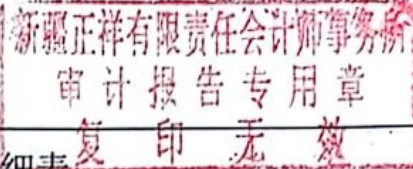 新疆正祥有限责任会计师事务所
审计报告专用章
复印无效
细表